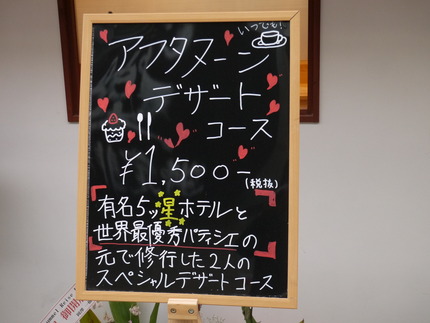 いつでも!
アフタヌーン
デザート
コース
¥1,500-
(税抜)
有名5ッ星ホテルと
世界最優秀パティシエの
元で修行した2人の
スペシャルデザートコース